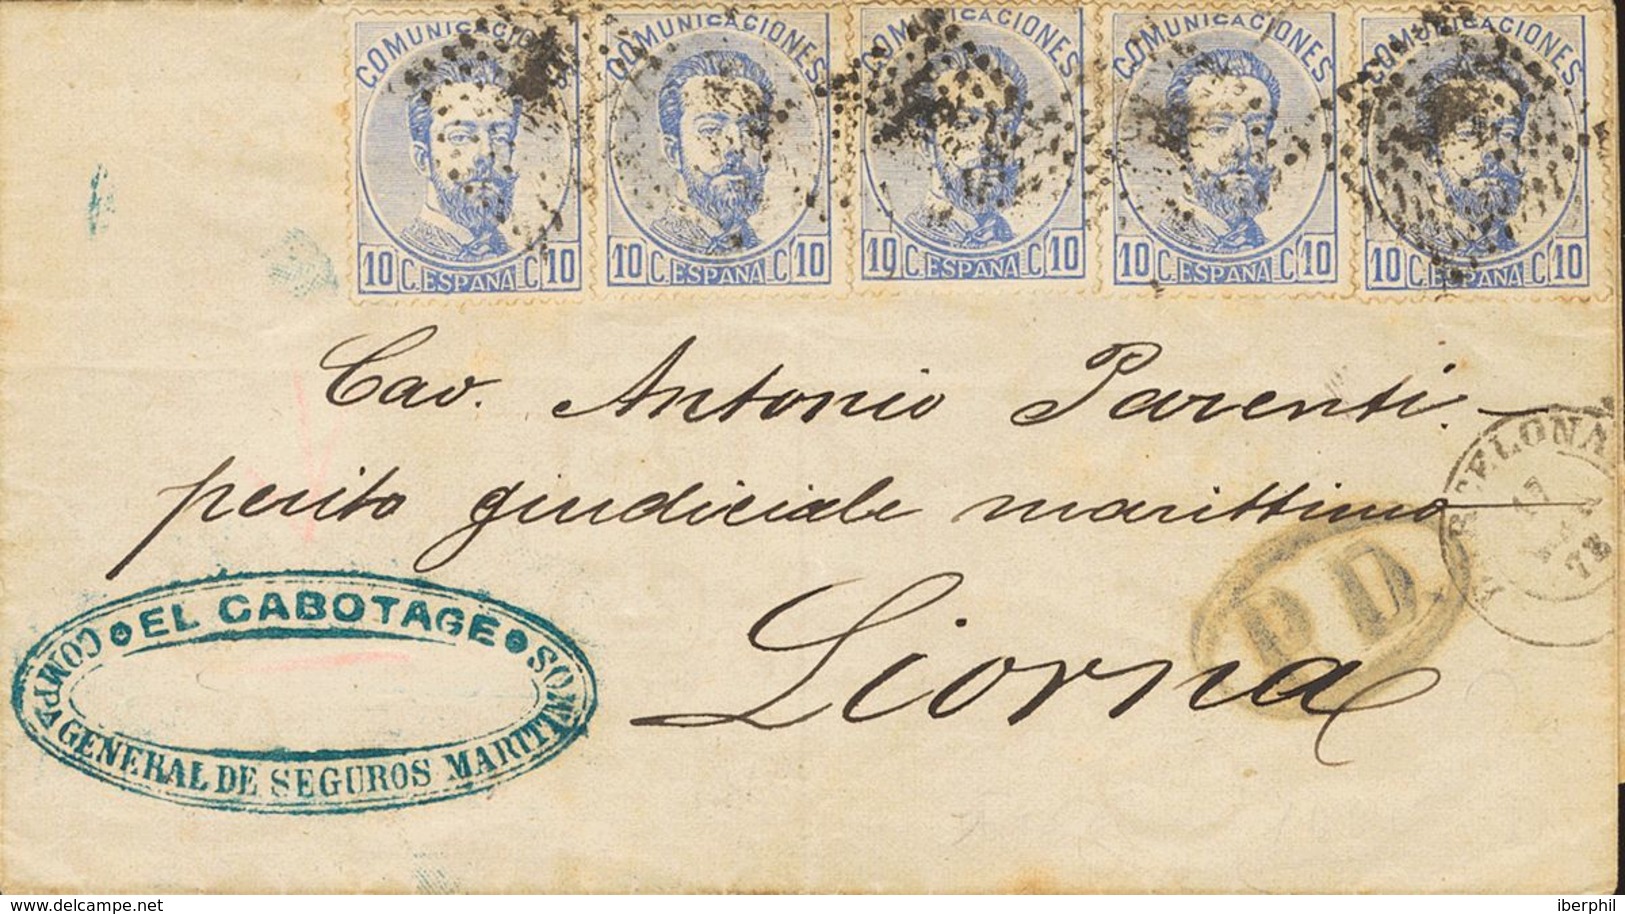 COMUNICACIONES COMUNICACIONES COMUNICACIONES COMUNICACIONES COMUNICACIONES
10 C. ESPAÑA C. 10 10 C. ESPAÑA C. 10 10 C. ESPAÑA C. 10 10 C. ESPAÑA C. 10 10 C. ESPAÑA C. 10
Cav. Antonio Parenti
perito giudiciale marittimo
Liorna
BARCELONA
17
72
P.D.
EL CABOTAGE
COMPA GENERAL DE SEGUROS MARITIMOS
www.delcampe.net
iberphil